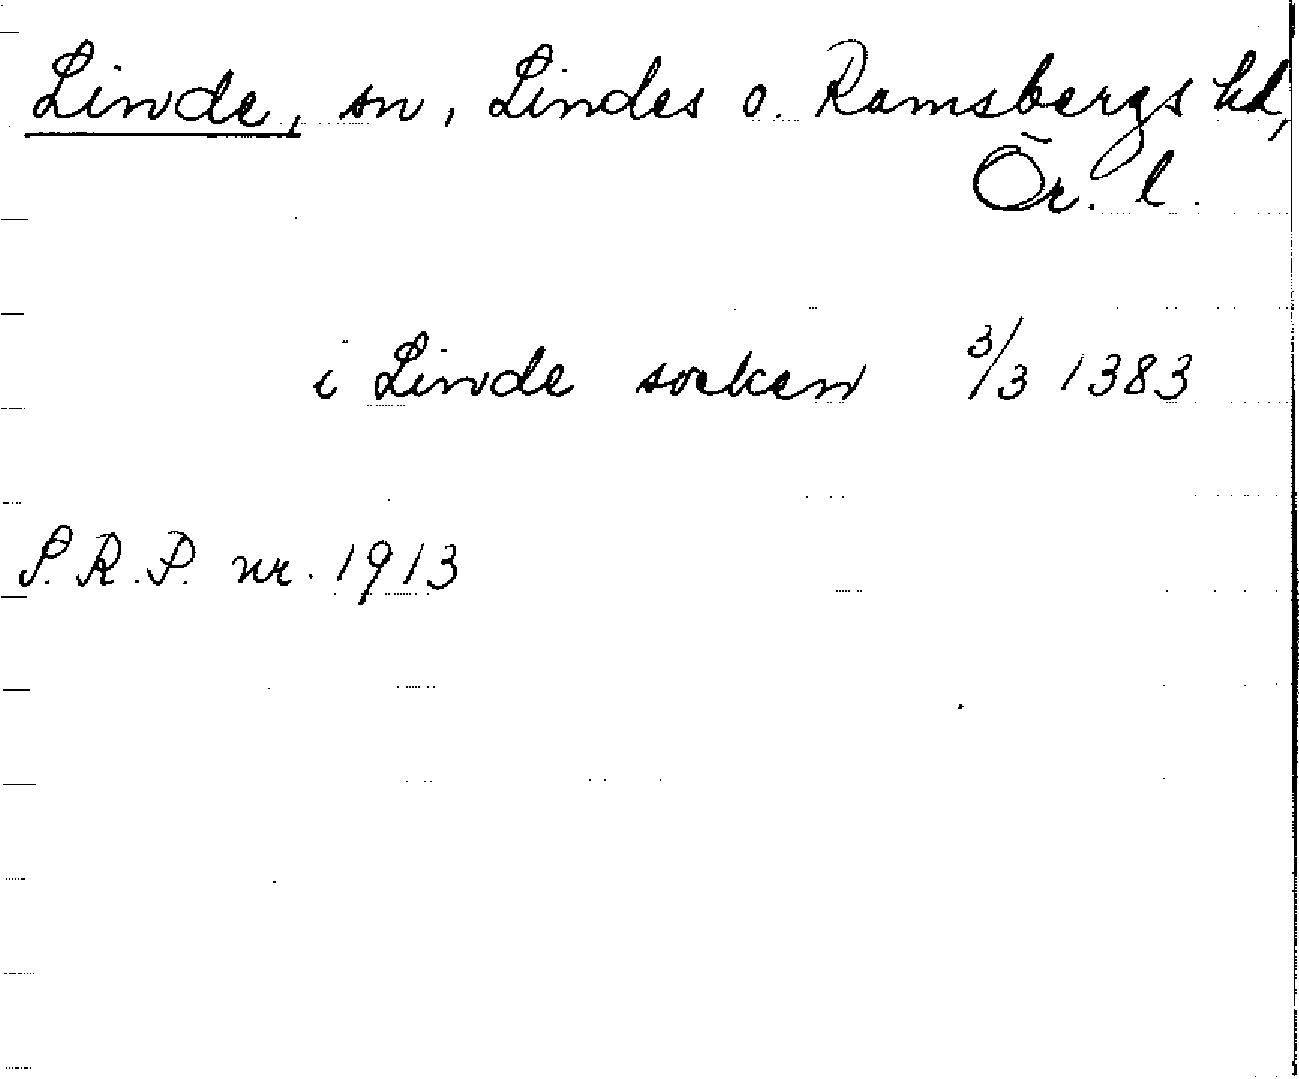 Linde, sn, Lindes o. Ramsbergs hd,
Ör. l.
i Linde soeken 3/3 1383
S.R.P. nr. 1913